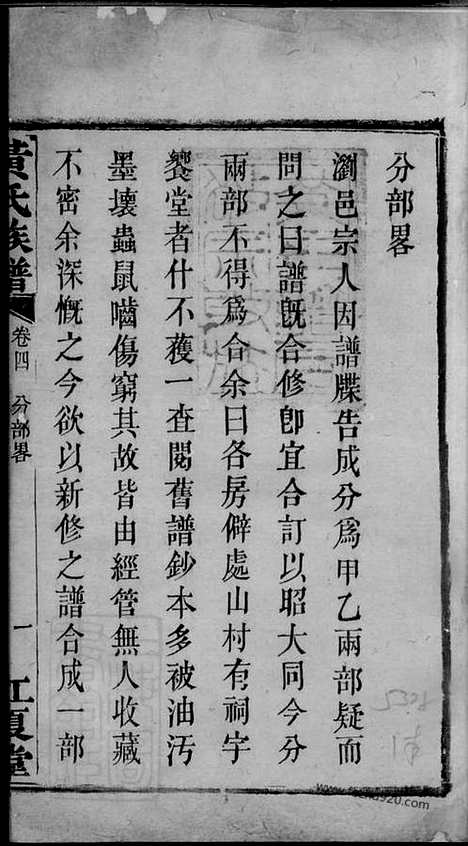 分部畧
瀏邑宗人因譜牒告成分爲甲乙兩部疑而
問之曰譜旣合修卽宜合訂以昭大同今分
兩部不得爲合余曰各房僻處山村有祠宇
饗堂者什不獲一查閱舊譜鈔本多被油汚
墨壞蟲鼠嚙傷窮其故皆由經管無人收藏
不密余深慨之今欲以新修之譜合成一部
黃氏族譜
卷四
分部畧
一
江夏堂